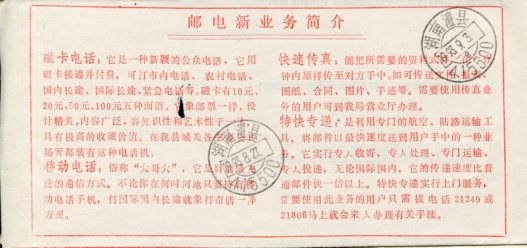 邮电新业务简介
磁卡电话，它是一种新颖的公众电话，它用
磁卡接通并付费，可打市内电话、农村电话、
国内长途、国际长途、紧急电话等。磁卡有10元、
20元、50元、100元五种面值。象邮票一样，设
计精美，内容广泛，容知识性和艺术性于一
具有极高的收藏价值。在我县城关各
场所都装有这种电话机。
移动电话，俗称“大哥大”，它是目前最先
进的通信方式。不论你在何时何地只要
动电话手机，打国际国内长途就象打市话一样
方便。
快速传真，能把所需要的资料
钟内原样传至对方手中。如可传送文
图纸、合同、图片、手迹等。需要使用传真业
务的用户可到我局营业厅办理。
特快专递：是利用专门的航空、陆路运输工
具，将邮件以最快速度送到用户手中的一种业
务。它实行专人收寄、专人处理、专门运输、
专人投递，无论国际国内，它的传递速度比普
通邮件快一倍以上。特快专递实行上门服务，
需要使用此业务的用户只需拔电话21249或
21806马上就会来人办理有关手续。
湖南澧县
湖南澧县